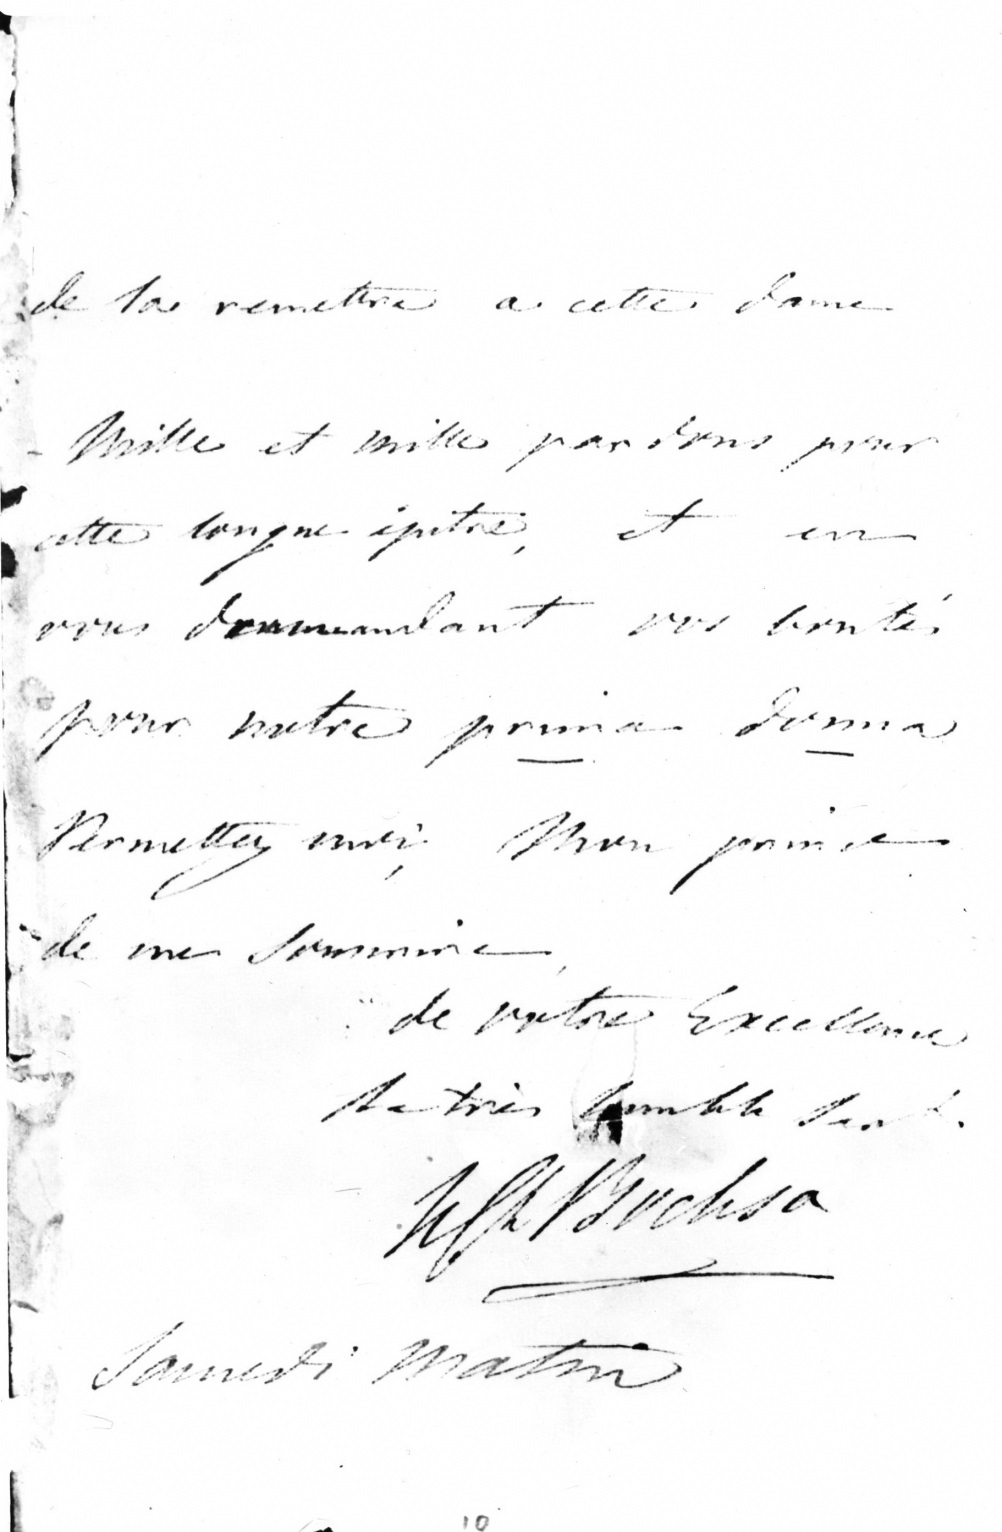 de la remettre a cette dame
Mille et mille pardons pour
cette longue epitre, et en
vous demandant vos bontés
pour notre prima donna
Permettez moi, Mon prince
de me souscrire,
de votre Excellence
le très humble Servt.
Bochsa
Samedi Matin
10